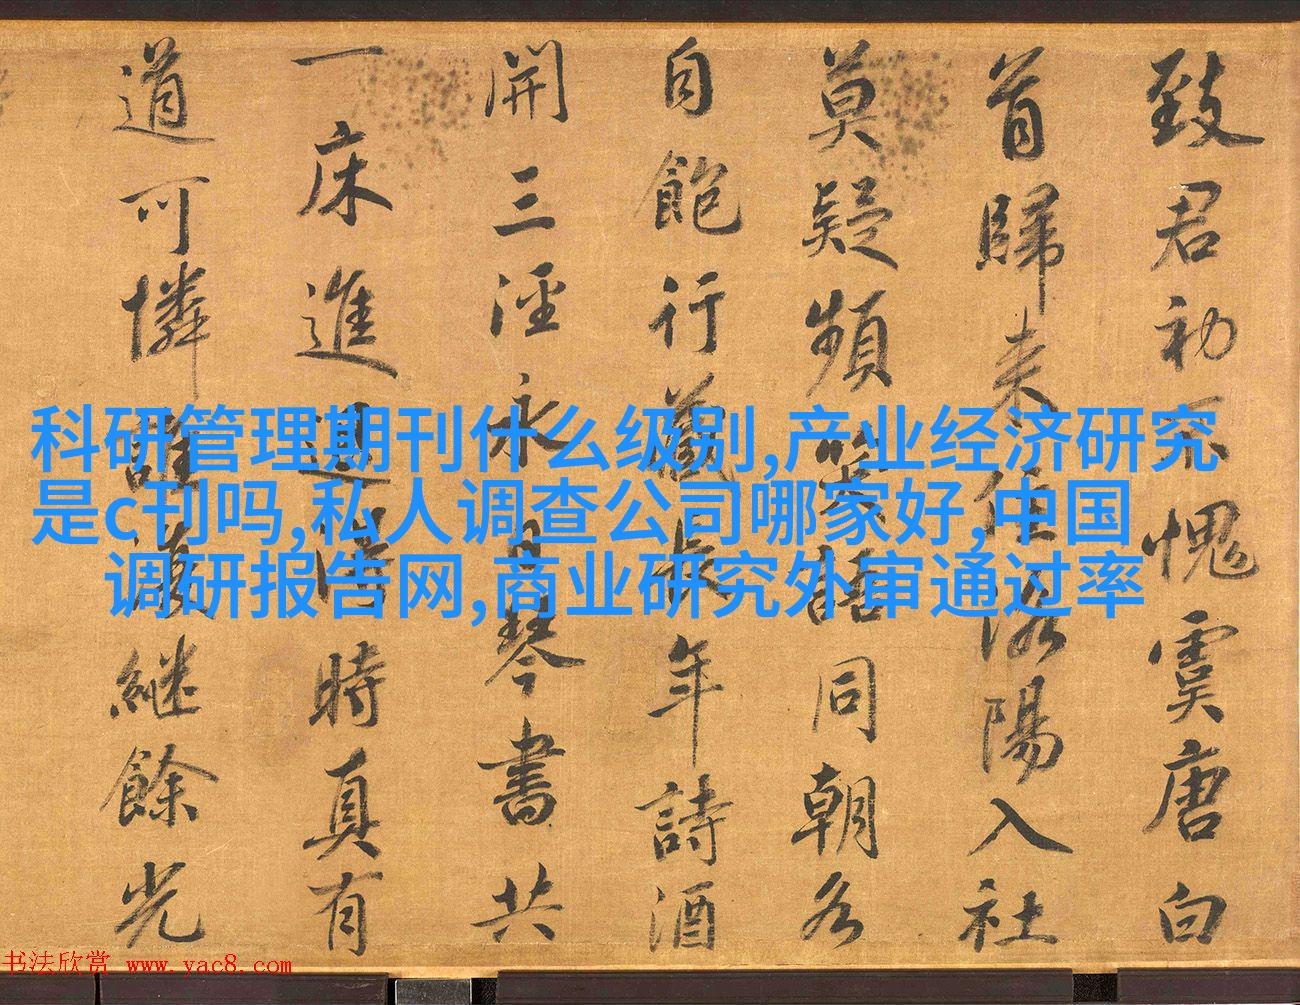 致君初不愧虞唐白
首歸来住洛陽入社
莫疑頻笑語同朝各
自飽行藏長年詩酒
開三涇永日琴書共
一床進退時真有
道可憐誰復繼餘光
科研管理期刊什么级别,产业经济研究
是c刊吗,私人调查公司哪家好,中国
调研报告网,商业研究外审通过率
书法欣赏 www.yac8.com